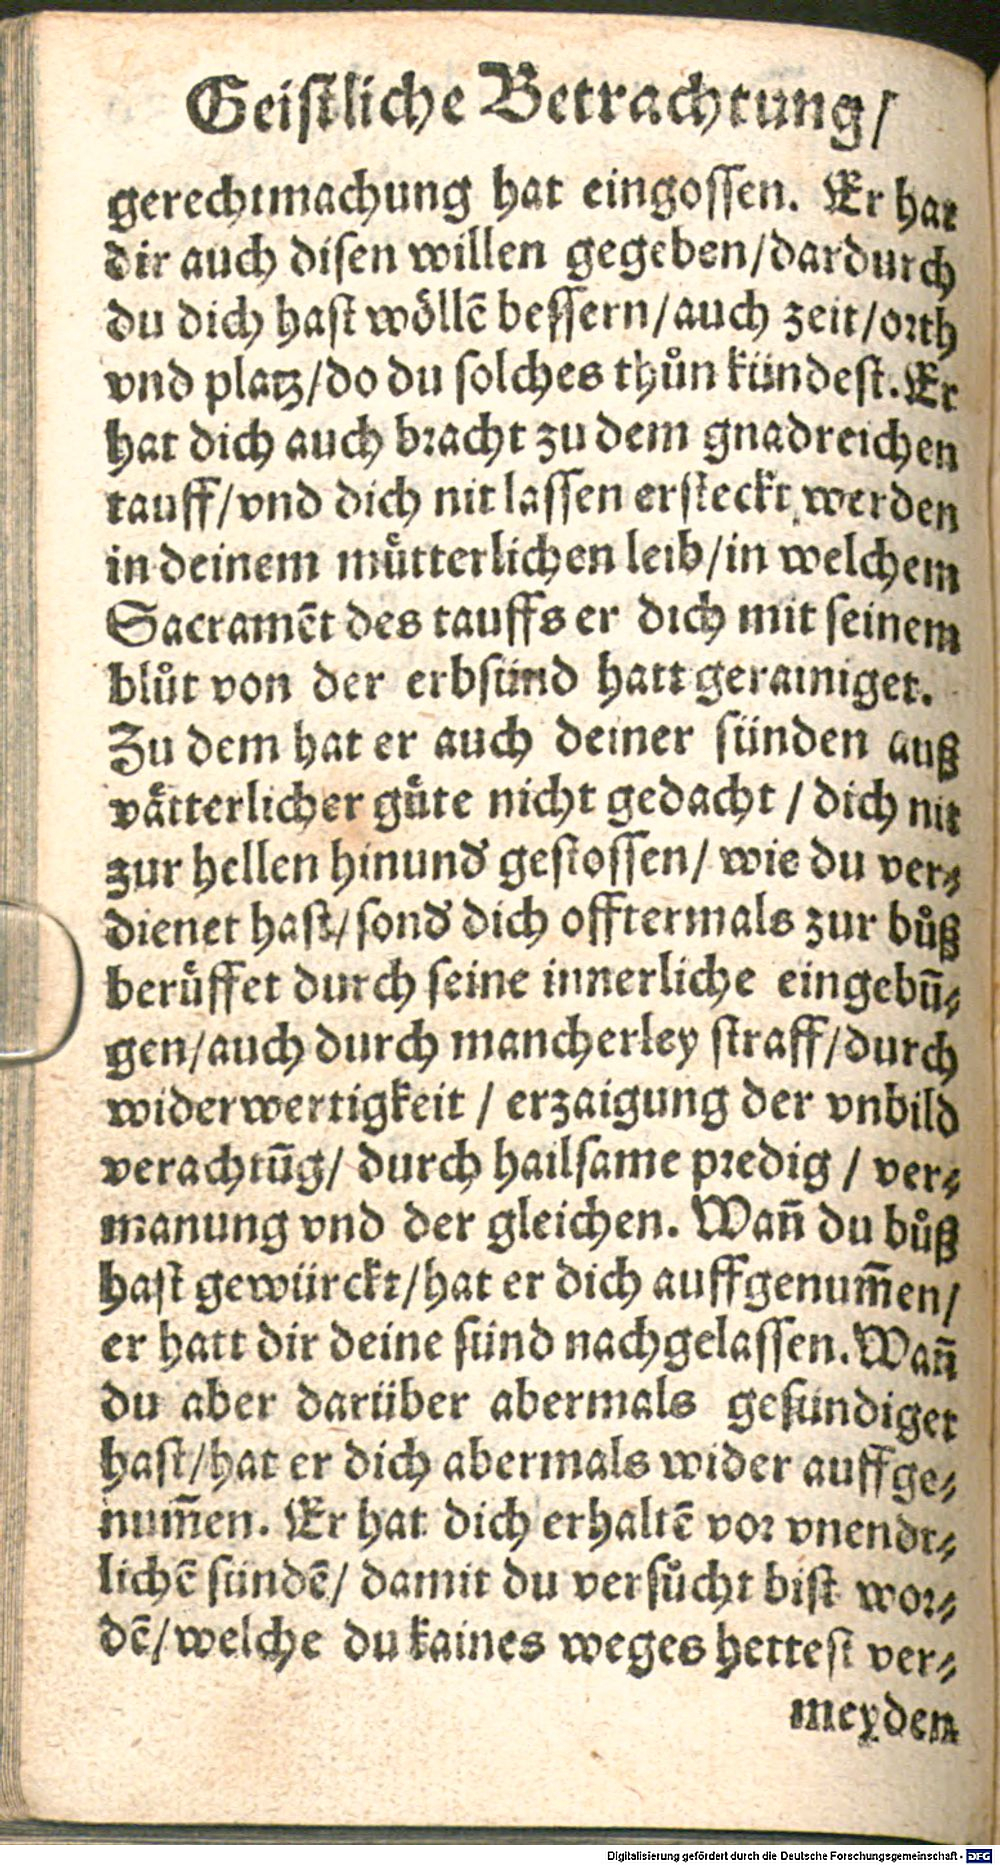 Geistliche Betrachtung/
gerechtmachung hat eingossen. Er hat
dir auch disen willen gegeben/dardurch
du dich hast wöllē bessern/auch zeit/orth
vnd platz/do du solches thůn kündest. Er
hat dich auch bracht zu dem gnadreichen
tauff/vnd dich nit lassen ersteckt werden
in deinem můtterlichen leib/in welchem
Sacramēt des tauffs er dich mit seinem
blůt von der erbsünd hatt gerainiget.
Zu dem hat er auch deiner sünden auß
vätterlicher güte nicht gedacht / dich nit
zur hellen hinund' gestossen/ wie du ver-
dienet hast/sond' dich offtermals zur bůß
berüffet durch seine innerliche eingebū-
gen/auch durch mancherley straff/durch
widerwertigkeit / erzaigung der vnbild
verachtūg/ durch hailsame predig / ver-
manung vnd der gleichen. Wañ du bůß
hast gewürckt/hat er dich auffgenum̃en/
er hatt dir deine sünd nachgelassen. Wañ
du aber darüber abermals gesündiget
hast/hat er dich abermals wider auffge-
num̃en. Er hat dich erhaltē vor vnendt-
lichē sündē/ damit du versůcht bist wor-
dē/welche du kaines weges hettest ver-
meyden
Digitalisierung gefördert durch die Deutsche Forschungsgemeinschaft - DFG